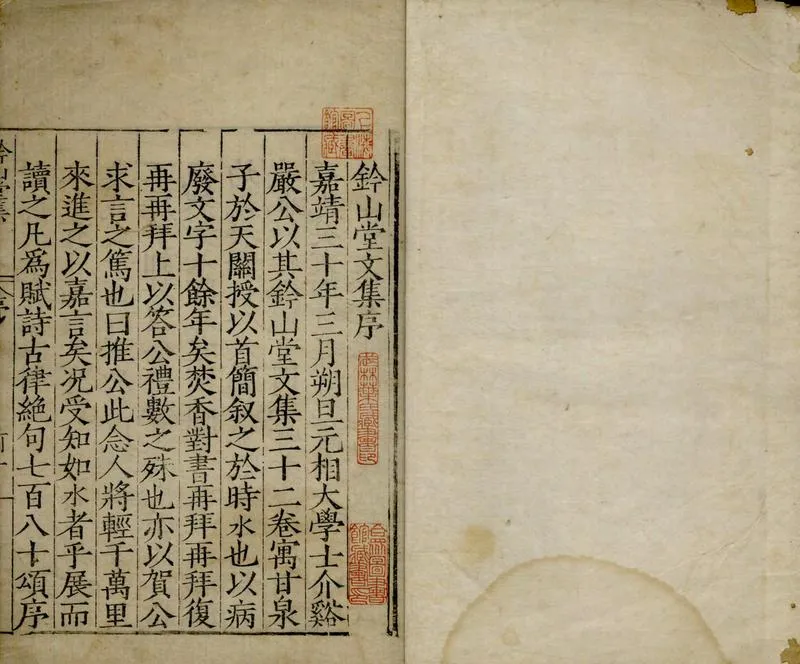 鈐山堂文集序
嘉靖三十年三月朔旦元相大學士介谿
嚴公以其鈐山堂文集三十二卷寓甘泉
子於天關授以首簡叙之於時水也以病
廢文字十餘年矣焚香對書再拜再拜復
再再拜上以答公禮數之殊也亦以賀公
求言之篤也曰推公此念人將輕千萬里
來進之以嘉言矣况受知如水者乎展而
讀之凡爲賦詩古律絕句七百八十頌序